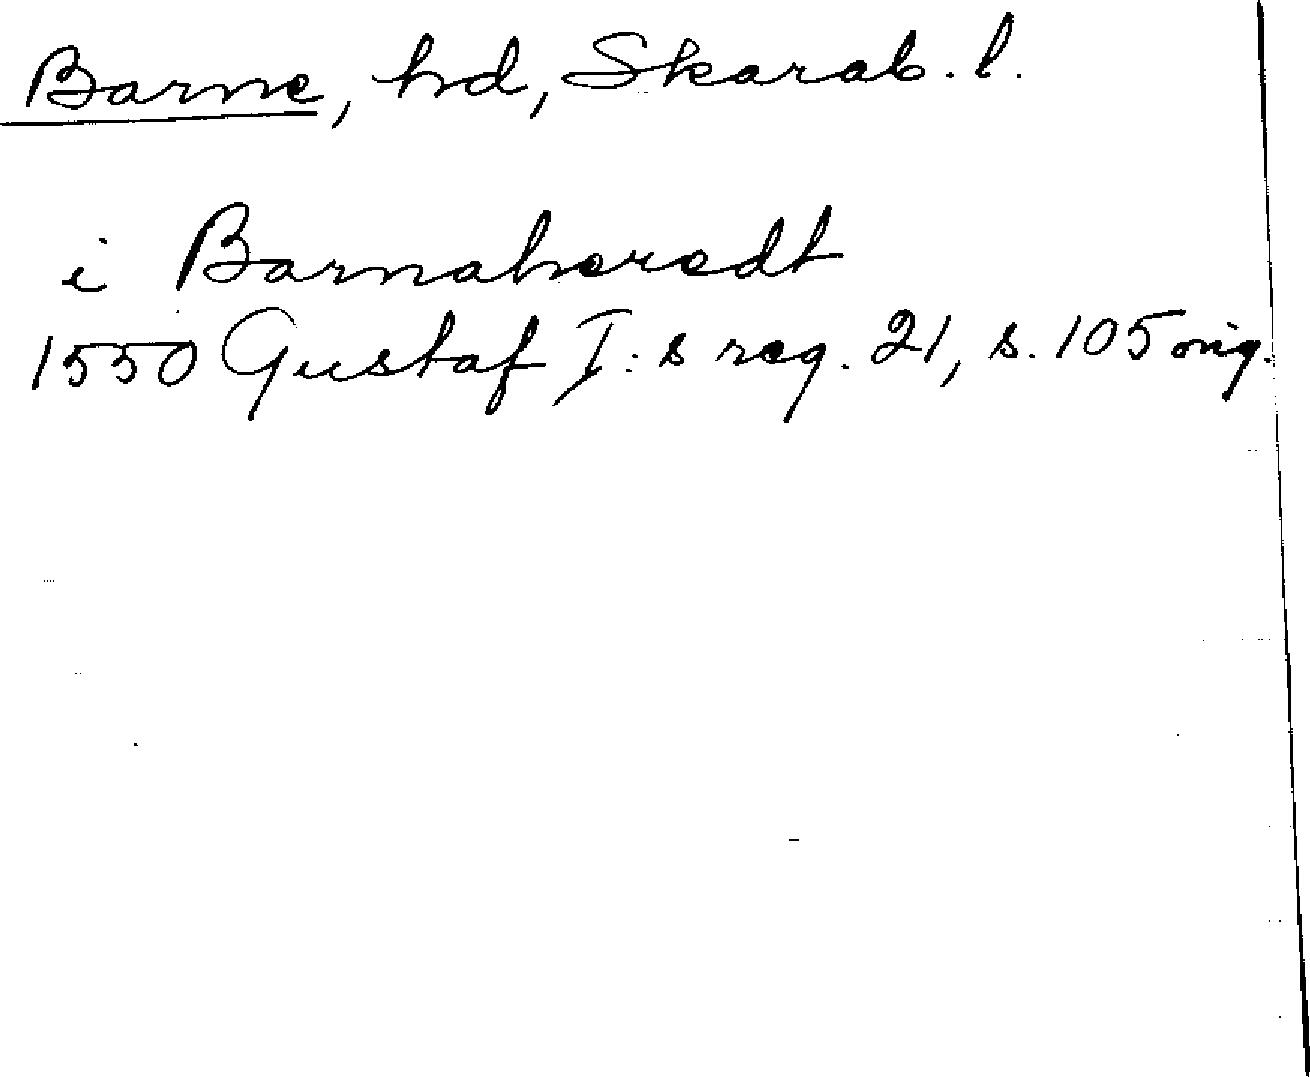 Barne, hd, Skarab. l.
i Barnaheredt
1550 Gustaf I:s reg. 21, s. 105 orig.